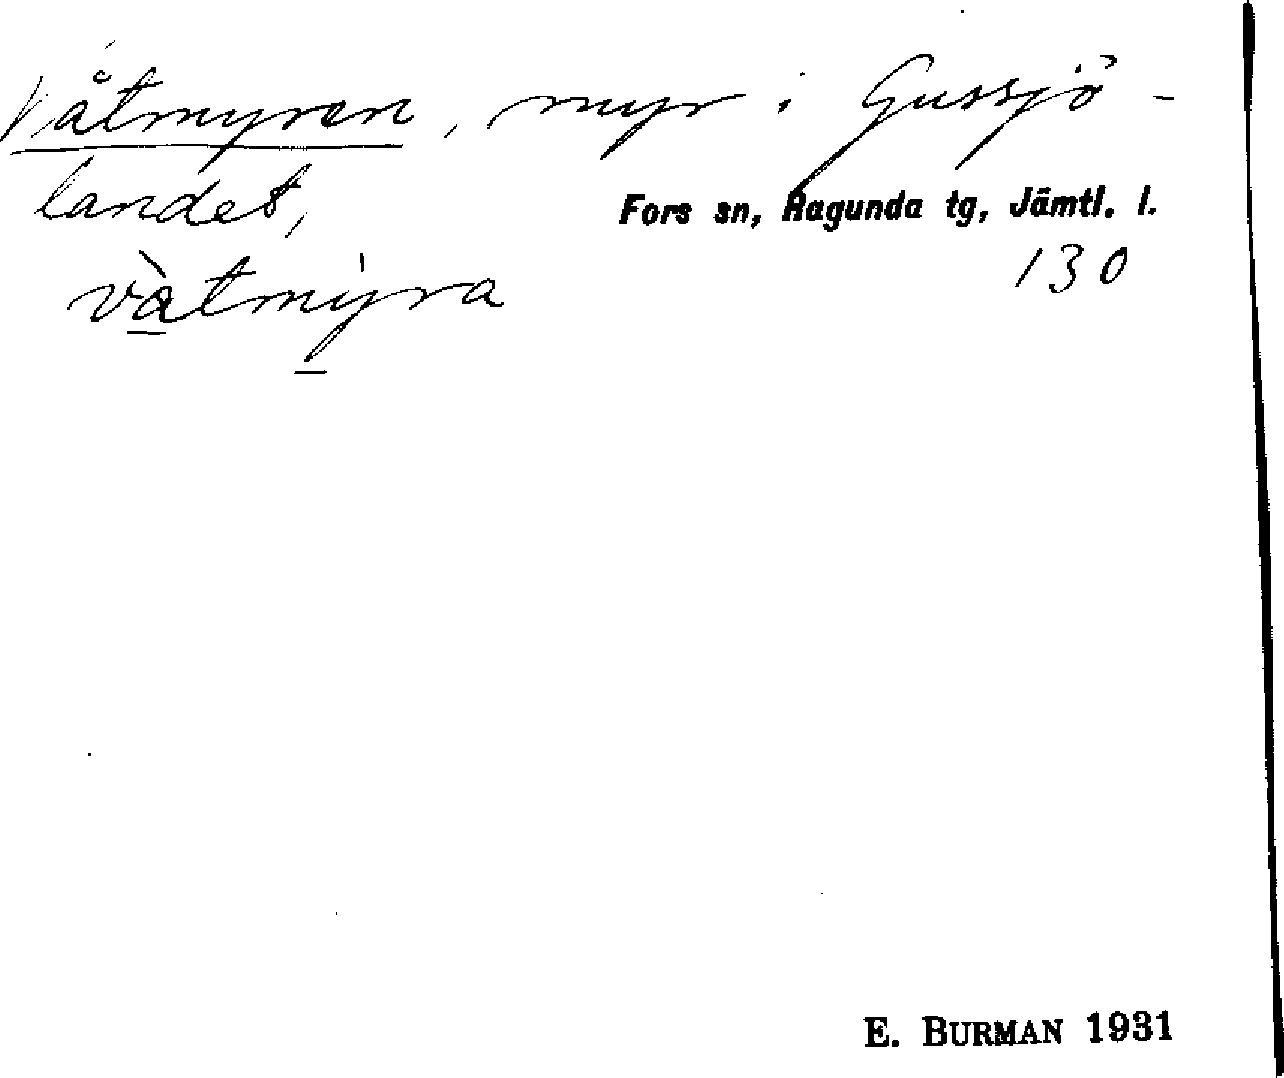 Våtmyren, myr i Gussjö-
landet,
Fors sn, Ragunda tg, Jämtl. l.
vàtmýra
130
E. BURMAN 1931